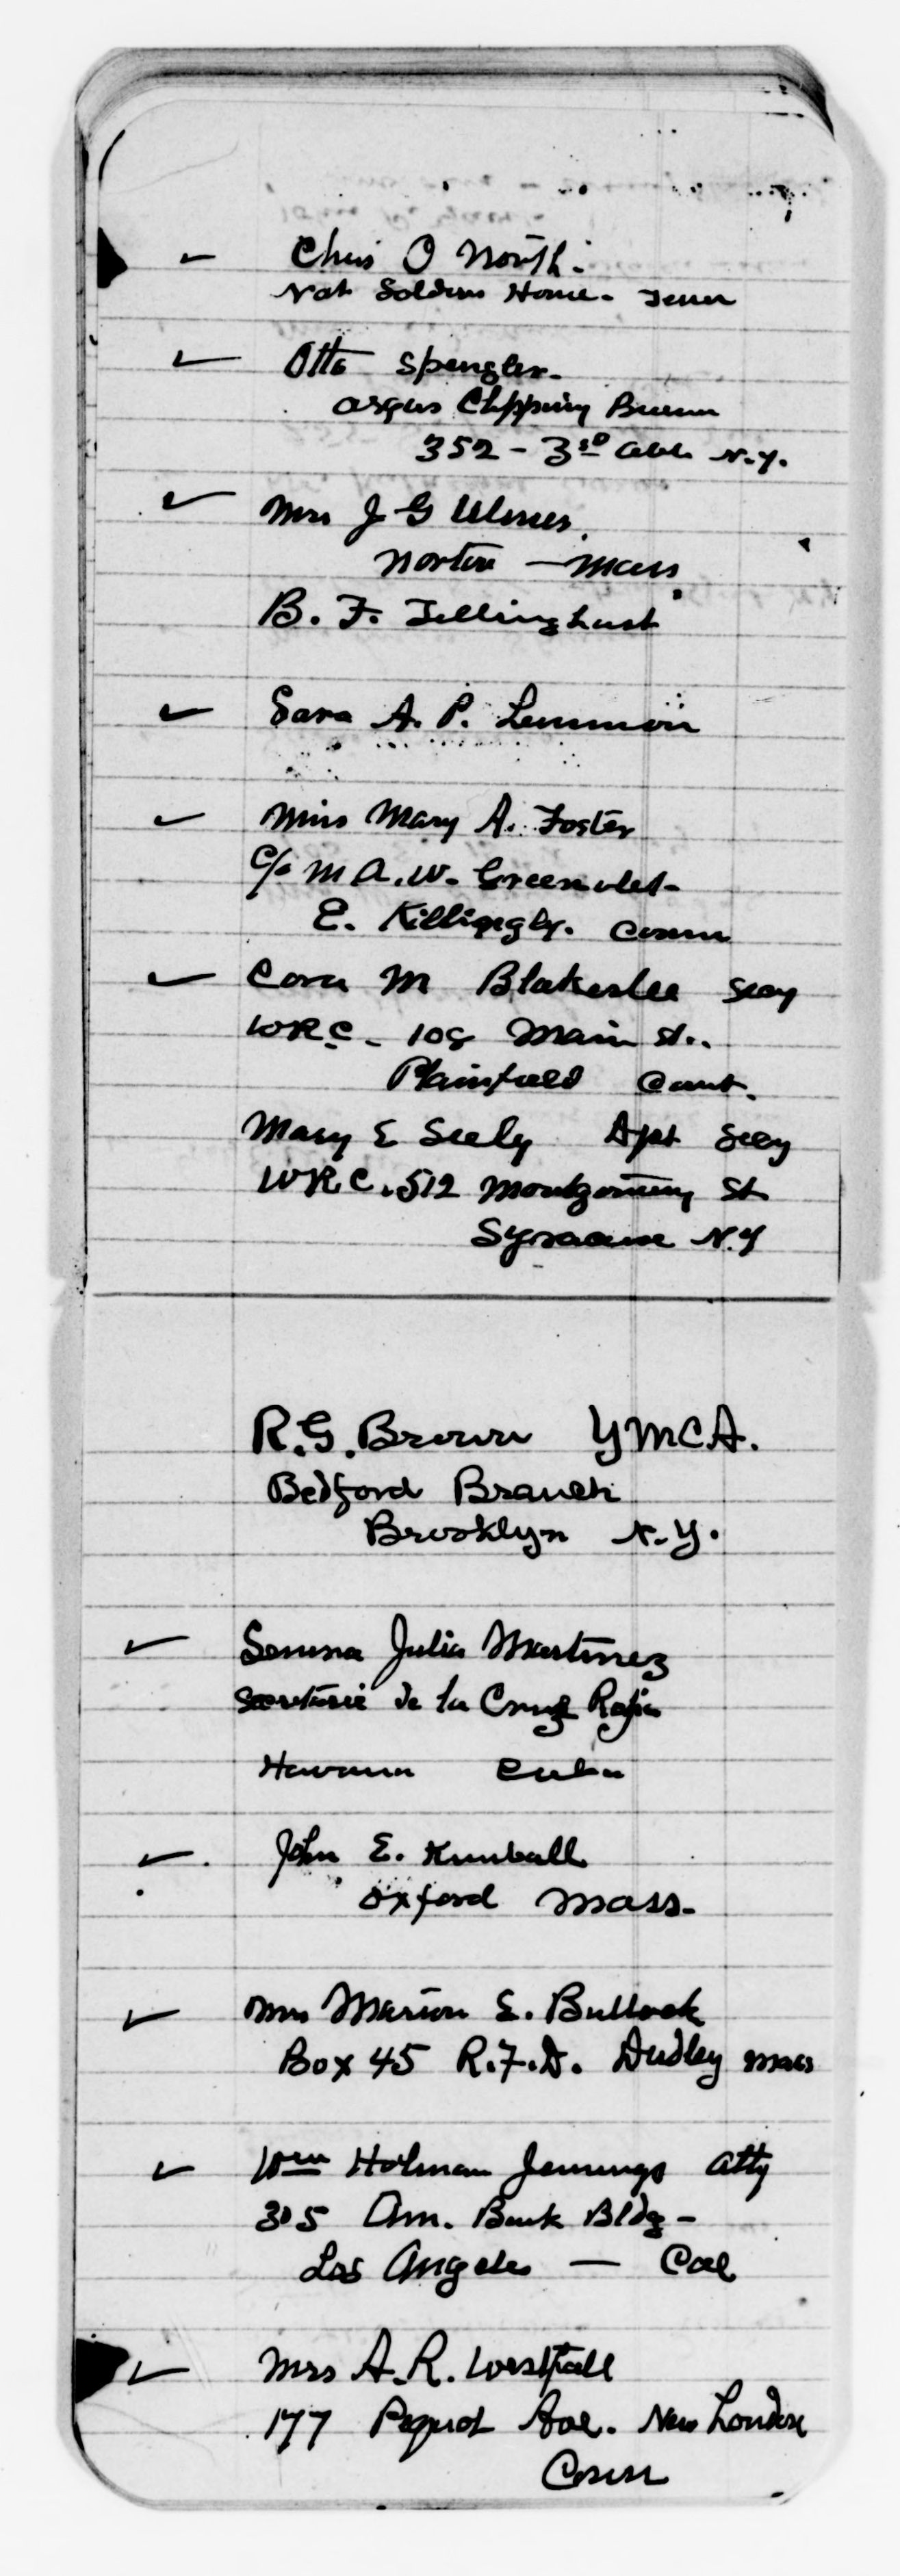 ✓ Chris O North.
Nat Soldiers Home - Tenn
✓ Otto Spengler -
Argus Clipping Bureau
352 - 3rd Ave. N.Y.
✓ Mrs J G
Norton - Mass
B. F. Tillinghast
✓ Sara A. P. Lemmon
✓ Miss Mary A. Foster
c/o M A. W. Greenslet -
E. Killingly. Conn
✓ Cora M Blakeslee Secy
WRC - 108 Main St..
Plainfield Cont.
Mary E Seely Dpt Secy
WRC. 512 Montgomery St
Syracuse N.Y
R. G. Brown YMCA.
Bedford Branch
Brooklyn N.Y.
✓ Senora Julia Martinez
Secretarie de la Cruz Roja
Havana Cuba
✓ John E. Kimball
Oxford Mass -
✓ Mrs Marion E. Bullock
Box 45 R.F.D. Dudley Mass
✓ Wm Holman Jennings Atty
305 Am. Bank Bldg -
Los Angeles — Cal
✓ Mrs A. R. Westfall
177 Pequot Ave. New London
Conn